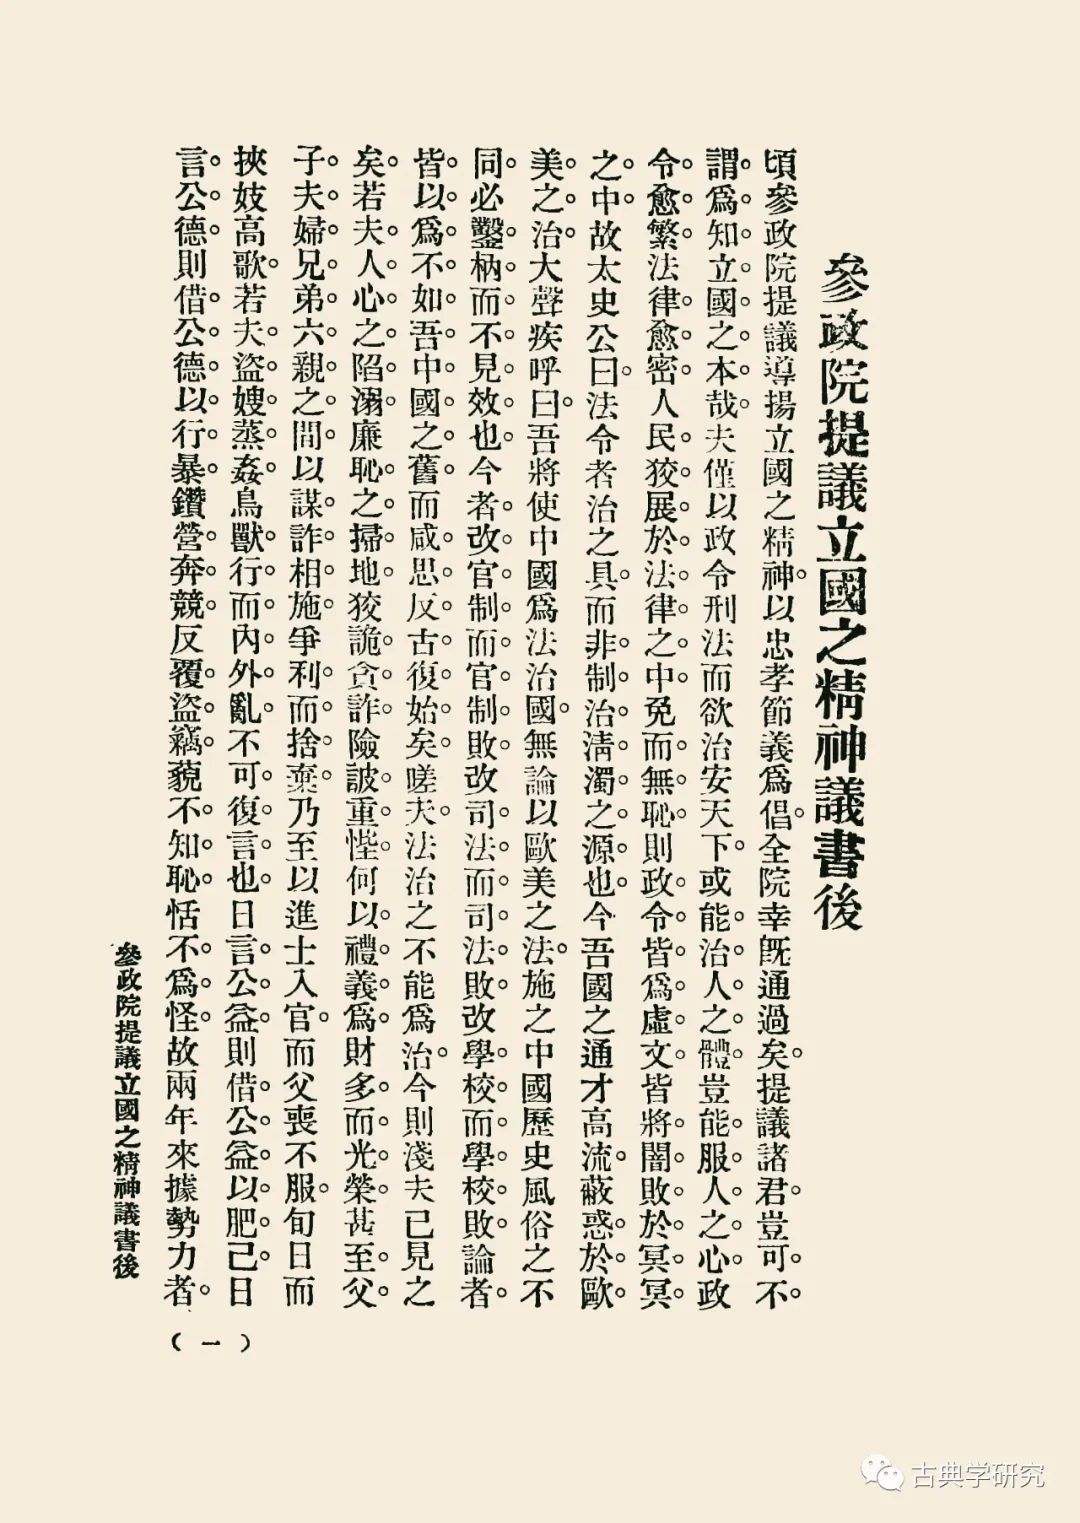 參政院提議立國之精神議書後
頃參政院提議導揚立國之精神。以忠孝節義爲倡。全院幸旣通過矣。提議諸君。豈可不。
謂。爲。知立。國。之。本。哉。夫僅以政令刑法而欲治安天下。或能。治。人。之。體。豈能。服。人。之。心。政
令。愈。繁。法律。愈。密。人民狡展於。法。律。之。中。免而無恥。則政。令。皆。爲。虛。文。皆將。闇。敗。於。冥。冥。
之。中。故太史公曰。法令者治之具。而非。制。治。淸。濁。之。源。也。今吾國之通才高流。蔽。惑。於。歐。
美。之。治。大聲疾呼曰。吾將使中國爲法治國。無論以歐美之法。施之中國歷史風俗之不
同。必。鑿。枘。而。不。見。效。也。今者。改。官。制。而。官。制。敗。改。司。法。而。司。法。敗。改。學。校。而。學。校。敗。論者。
皆。以。爲。不。如。吾。中。國。之。舊。而咸。思。反。古。復。始。矣。嗟夫。法治之不能爲治。今則淺夫已見之
矣。若夫。人。心。之。陷。溺。廉。恥。之。掃。地。狡。詭。貪。詐。險。詖。重。悂。何以。禮。義。爲。財。多。而。光。榮。甚。至。父。
子。夫。婦。兄。弟。六。親。之。間。以謀。詐。相。施。爭利。而。捨。棄。乃至以進士入官。而父喪不服。旬日而
挾妓高歌。若夫。盜。嫂。蒸。姦。鳥。獸。行。而。內。外。亂。不。可。復。言。也。曰言。公。益。則借。公。益。以。肥。己。曰
言。公。德。則借。公。德。以。行。暴。鑽。營。奔。競。反。覆。盜。竊。藐。不。知。恥。恬不。爲。怪。故兩年來據勢力者。
參政院提議立國之精神議書後
（一）
古典学研究